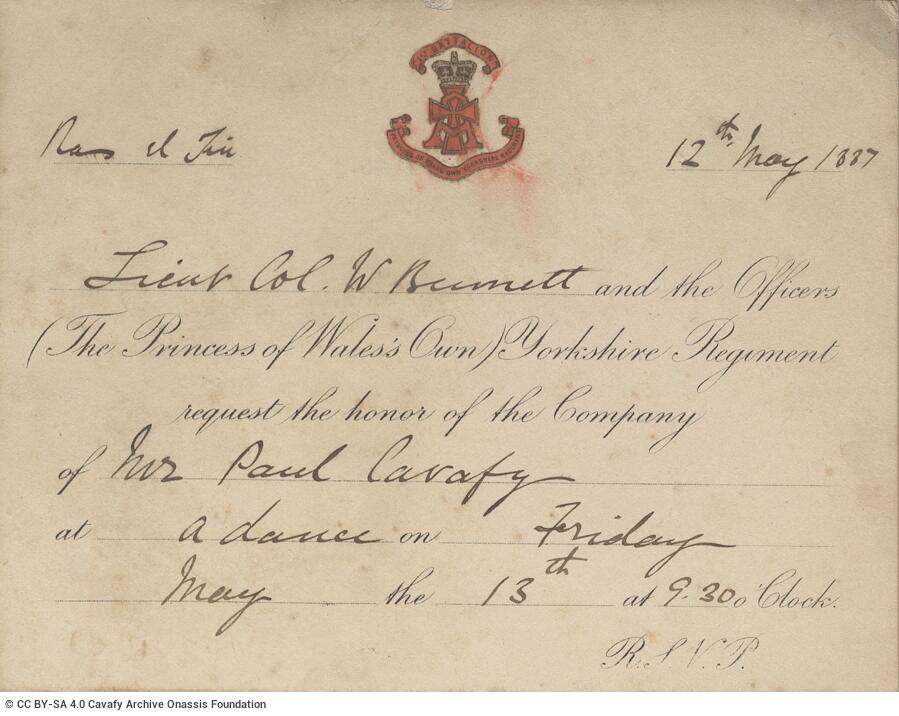 1ST BATTALION
PRINCESS OF WALES OWN YORKSHIRE REGIMENT
Ras el Tin
12th May 1887
Lieut Col. W Bunnett and the Officers
(The Princess of Wales's Own) Yorkshire Regiment
request the honor of the Company
of Mr Paul Cavafy
at a dance on Friday
May the 13th at 9.30 o'Clock.
R.S.V.P.
© CC BY-SA 4.0 Cavafy Archive Onassis Foundation